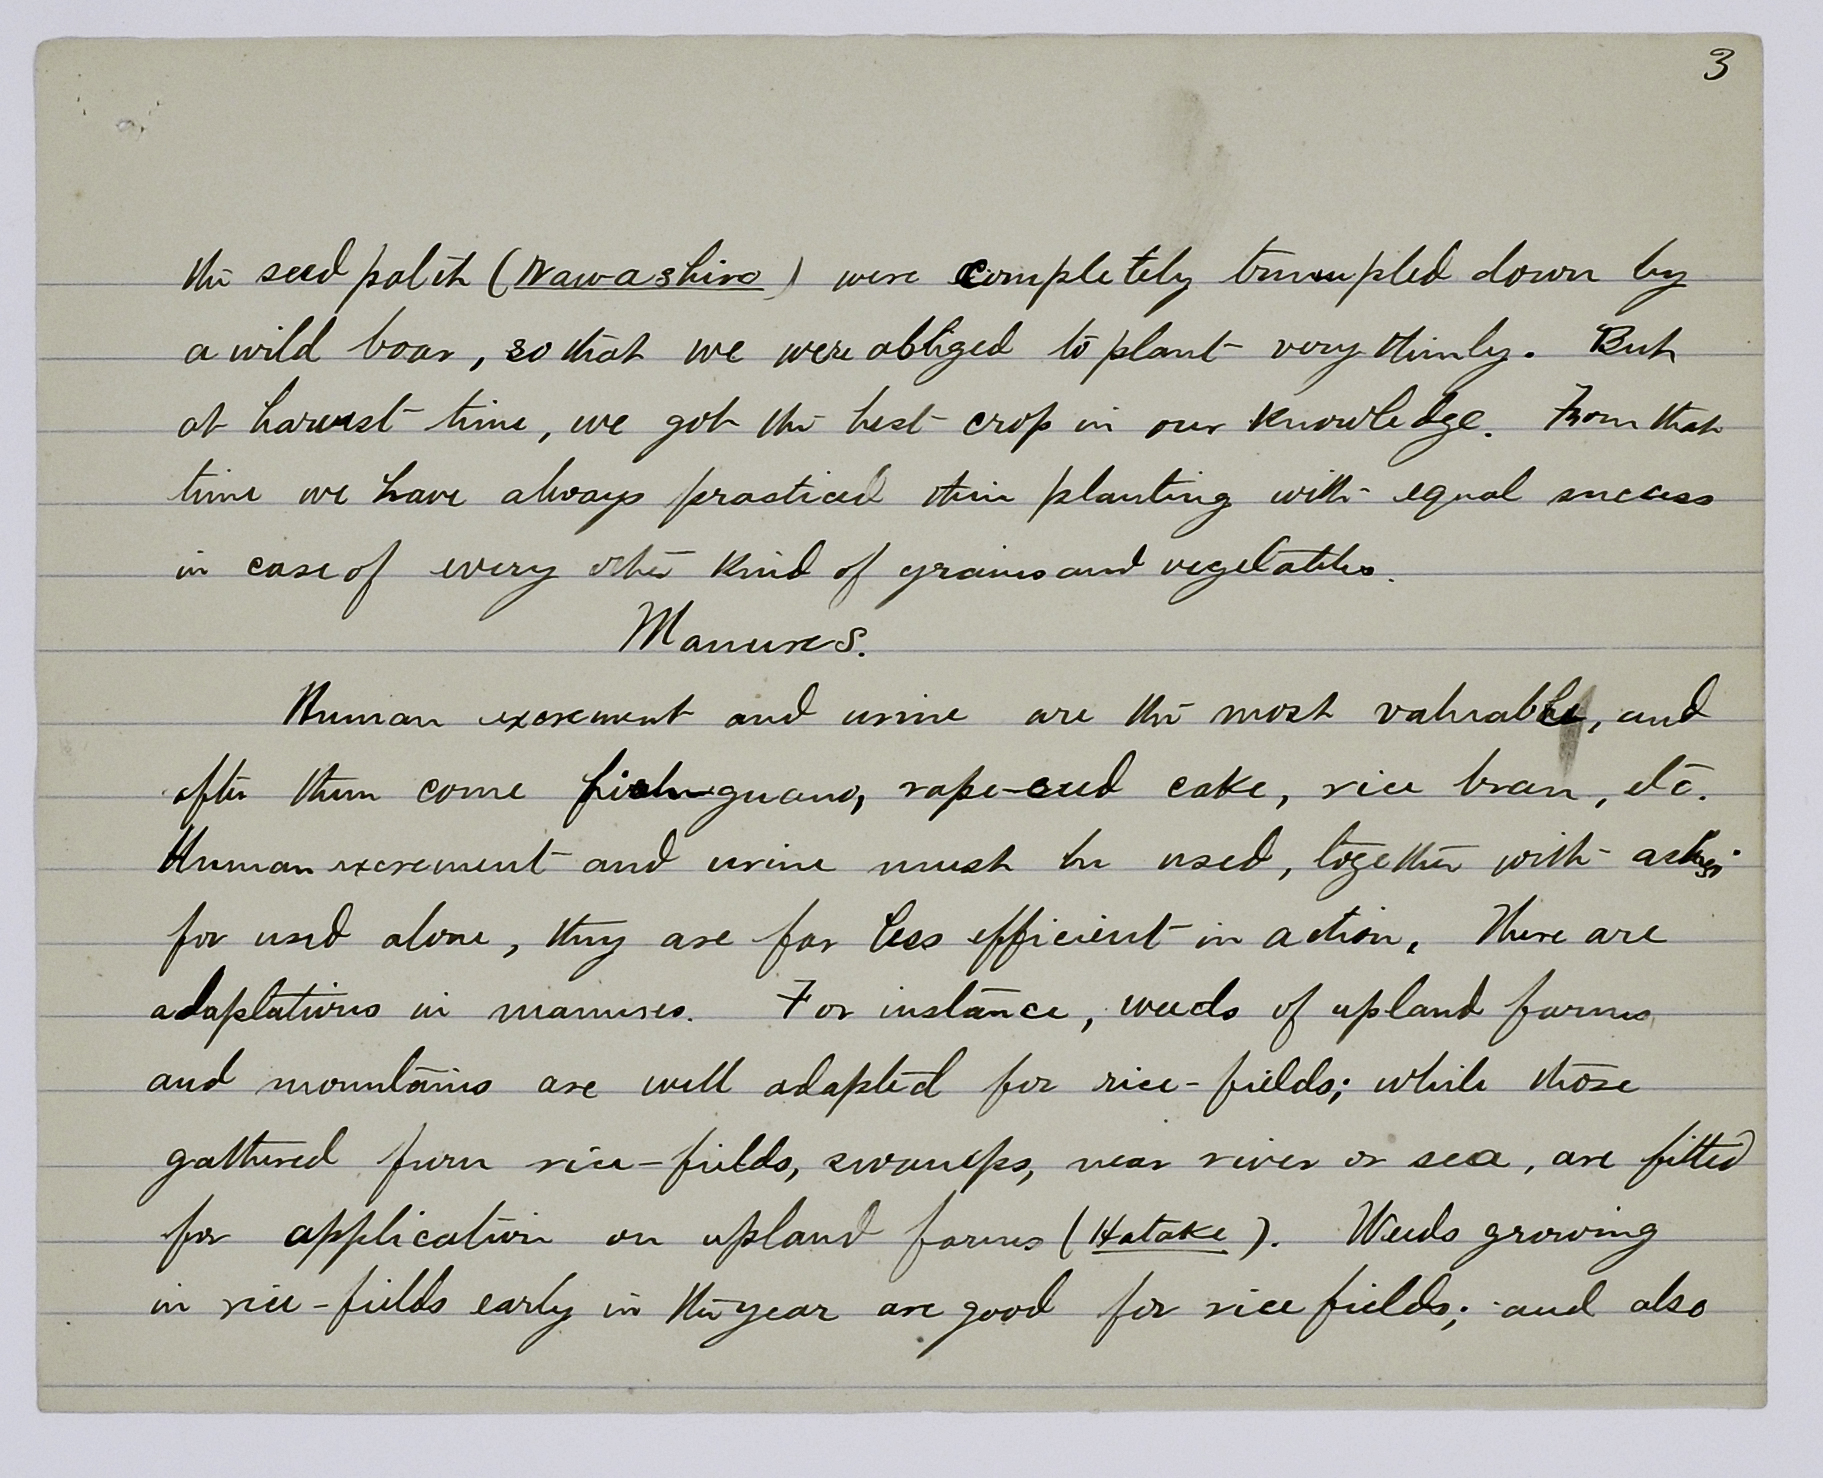 3
the seed patch (Nawashiro) were completely trumpled down by
a wild boar, so that we were obliged to plant very thinly. But
at harvest time, we got the best crop in our knowledge. From that
time we have always practiced thin planting with equal success
in case of every other kind of grains and vegetables.
Manures.
Human excrement and urine are the most valuable, and
after them come fish-guano, rape-seed cake, rice bran, etc.
Human excrement and urine must be used, together with ashes;
for used alone, they are far less efficient in action. There are
adaptations in manures. For instance, weeds of upland farms
and mountains are well adapted for rice-fields; while those
gathered from rice-fields, swamps, near river or sea, are fitted
for application on upland farms (Hatake). Weeds growing
in rice-fields early in the year are good for rice fields; and also